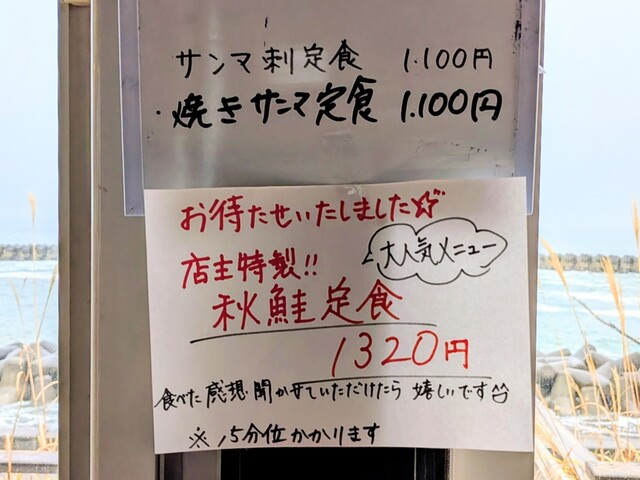 サンマ刺定食 1.100円
・焼きサンマ定食 1.100円
お待たせいたしました☆
店主特製!!
大人気メニュー
秋鮭定食
1320円
食べた感想聞かせていただけたら嬉しいです
※15分位かかります